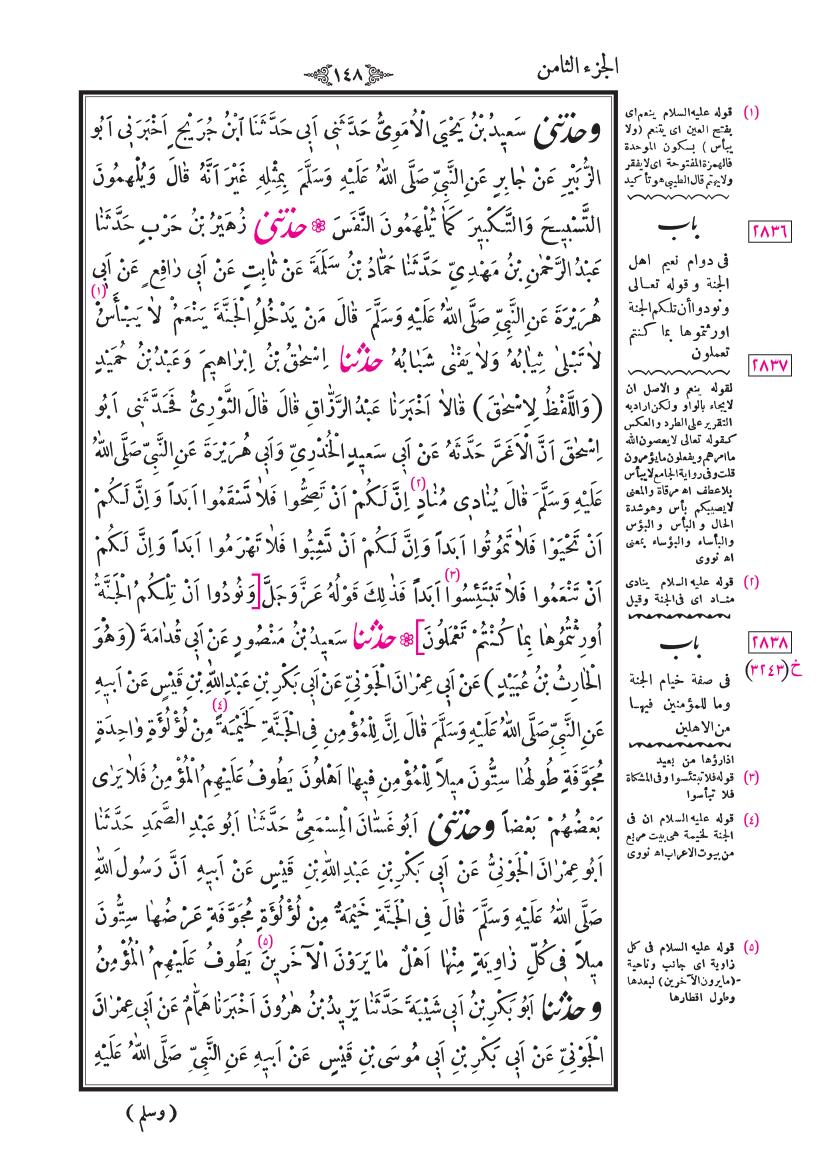 الجزء الثامن
١٤٨
وحدثنى سَعِيدُ بْنُ يَحْيَى الْاُمَوِىُّ حَدَّثَنِى اَبِى حَدَّثَنَا ابْنُ جُرَيْجٍ اَخْبَرَنِى اَبُو
الزُّبَيْرِ عَنْ جَابِرٍ عَنِ النَّبِىِّ صَلَّى اللّٰهُ عَلَيْهِ وَسَلَّمَ بِمِثْلِهِ غَيْرَ اَنَّهُ قَالَ وَيُلْهَمُونَ
التَّسْبِيحَ وَالتَّكْبِيرَ كَمَا يُلْهَمُونَ النَّفَسَ ❁ حدثنى زُهَيْرُ بْنُ حَرْبٍ حَدَّثَنَا
عَبْدُ الرَّحْمٰنِ بْنُ مَهْدِىٍّ حَدَّثَنَا حَمَّادُ بْنُ سَلَمَةَ عَنْ ثَابِتٍ عَنْ اَبِى رَافِعٍ عَنْ اَبِى
هُرَيْرَةَ عَنِ النَّبِىِّ صَلَّى اللّٰهُ عَلَيْهِ وَسَلَّمَ قَالَ مَنْ يَدْخُلُ الْجَنَّةَ يَنْعَمُ لَا يَبْأَسُ (١)
لَا تَبْلَى ثِيَابُهُ وَلَا يَفْنَى شَبَابُهُ حدثنا اِسْحٰقُ بْنُ اِبْرَاهِيمَ وَعَبْدُ بْنُ حُمَيْدٍ
(وَاللَّفْظُ لِاِسْحٰقَ) قَالَا اَخْبَرَنَا عَبْدُ الرَّزَّاقِ قَالَ قَالَ الثَّوْرِىُّ فَحَدَّثَنِى اَبُو
اِسْحٰقَ اَنَّ الْاَغَرَّ حَدَّثَهُ عَنْ اَبِى سَعِيدٍ الْخُدْرِىِّ وَاَبِى هُرَيْرَةَ عَنِ النَّبِىِّ صَلَّى اللّٰهُ
عَلَيْهِ وَسَلَّمَ قَالَ يُنَادِى مُنَادٍ (٢) اِنَّ لَكُمْ اَنْ تَصِحُّوا فَلَا تَسْقَمُوا اَبَداً وَاِنَّ لَكُمْ
اَنْ تَحْيَوْا فَلَا تَمُوتُوا اَبَداً وَاِنَّ لَكُمْ اَنْ تَشِبُّوا فَلَا تَهْرَمُوا اَبَداً وَاِنَّ لَكُمْ
اَنْ تَنْعَمُوا فَلَا تَبْتَئِسُوا (٣) اَبَداً فَذٰلِكَ قَوْلُهُ عَزَّ وَجَلَّ [وَنُودُوا اَنْ تِلْكُمُ الْجَنَّةُ
اُورِثْتُمُوهَا بِمَا كُنْتُمْ تَعْمَلُونَ] ❁ حدثنا سَعِيدُ بْنُ مَنْصُورٍ عَنْ اَبِى قُدَامَةَ (وَهُوَ
الْحَارِثُ بْنُ عُبَيْدٍ) عَنْ اَبِى عِمْرَانَ الْجَوْنِىِّ عَنْ اَبِى بَكْرِ بْنِ عَبْدِ اللّٰهِ بْنِ قَيْسٍ عَنْ اَبِيهِ
عَنِ النَّبِىِّ صَلَّى اللّٰهُ عَلَيْهِ وَسَلَّمَ قَالَ اِنَّ لِلْمُؤْمِنِ فِى الْجَنَّةِ لَخَيْمَةً (٤) مِنْ لُؤْلُؤَةٍ وَاحِدَةٍ
مُجَوَّفَةٍ طُولُهَا سِتُّونَ مِيلاً لِلْمُؤْمِنِ فِيهَا اَهْلُونَ يَطُوفُ عَلَيْهِمُ الْمُؤْمِنُ فَلَا يَرٰى
بَعْضُهُمْ بَعْضاً وحدثنى اَبُو غَسَّانَ الْمِسْمَعِىُّ حَدَّثَنَا اَبُو عَبْدِ الصَّمَدِ حَدَّثَنَا
اَبُو عِمْرَانَ الْجَوْنِىُّ عَنْ اَبِى بَكْرِ بْنِ عَبْدِ اللّٰهِ بْنِ قَيْسٍ عَنْ اَبِيهِ اَنَّ رَسُولَ اللّٰهِ
صَلَّى اللّٰهُ عَلَيْهِ وَسَلَّمَ قَالَ فِى الْجَنَّةِ خَيْمَةٌ مِنْ لُؤْلُؤَةٍ مُجَوَّفَةٍ عَرْضُهَا سِتُّونَ
مِيلاً فِى كُلِّ زَاوِيَةٍ مِنْهَا اَهْلٌ مَا يَرَوْنَ الْآخَرِينَ (٥) يَطُوفُ عَلَيْهِمُ الْمُؤْمِنُ
وحدثنا اَبُو بَكْرِ بْنُ اَبِى شَيْبَةَ حَدَّثَنَا يَزِيدُ بْنُ هٰرُونَ اَخْبَرَنَا هَمَّامٌ عَنْ اَبِى عِمْرَانَ
الْجَوْنِىِّ عَنْ اَبِى بَكْرِ بْنِ اَبِى مُوسَى بْنِ قَيْسٍ عَنْ اَبِيهِ عَنِ النَّبِىِّ صَلَّى اللّٰهُ عَلَيْهِ
(وسلم)
(١) قوله عليه السلام ينعم اى
بفتح العين اى يتنعم (ولا
يبأس) بسكون الموحدة
فالهمزة المفتوحة اى لا يفقر
ولا يهتم قال الطيبى هو تأكيد
٢٨٣٦
باب
فى دوام نعيم اهل
الجنة و قوله تعالى
ونودوا أن تلكم الجنة
اورثتموها بما كنتم
تعملون
٢٨٣٧
لقوله ينعم والاصل ان
لا يجاء بالواو ولكن اراد به
التقرير على الطرد والعكس
كقوله تعالى لا يعصون الله
ما امرهم ويفعلون ما يؤمرون
قلت وفى رواية الجامع لا يبأس
بلا عطف اه مرقاة والمعنى
لا يصيبكم بأس وهو شدة
الحال و البأس و البؤس
والبأساء والبؤساء بمعنى
اه نووى
(٢) قوله عليه السلام ينادى
مناد اى فى الجنة وقيل
٢٨٣٨
خ(٣٢٤٣)
باب
فى صفة خيام الجنة
وما للمؤمنين فيها
من الاهلين
اذا رؤها من بعيد
(٣) قوله فلا تبتئسوا وفى المشكاة
فلا تبأسوا
(٤) قوله عليه السلام ان فى
الجنة لخيمة هى بيت مربع
من بيوت الاعراب اه نووى
(٥) قوله عليه السلام فى كل
زاوية اى جانب وناحية
(ما يرون الآخرين) لبعدها
وطول اقطارها